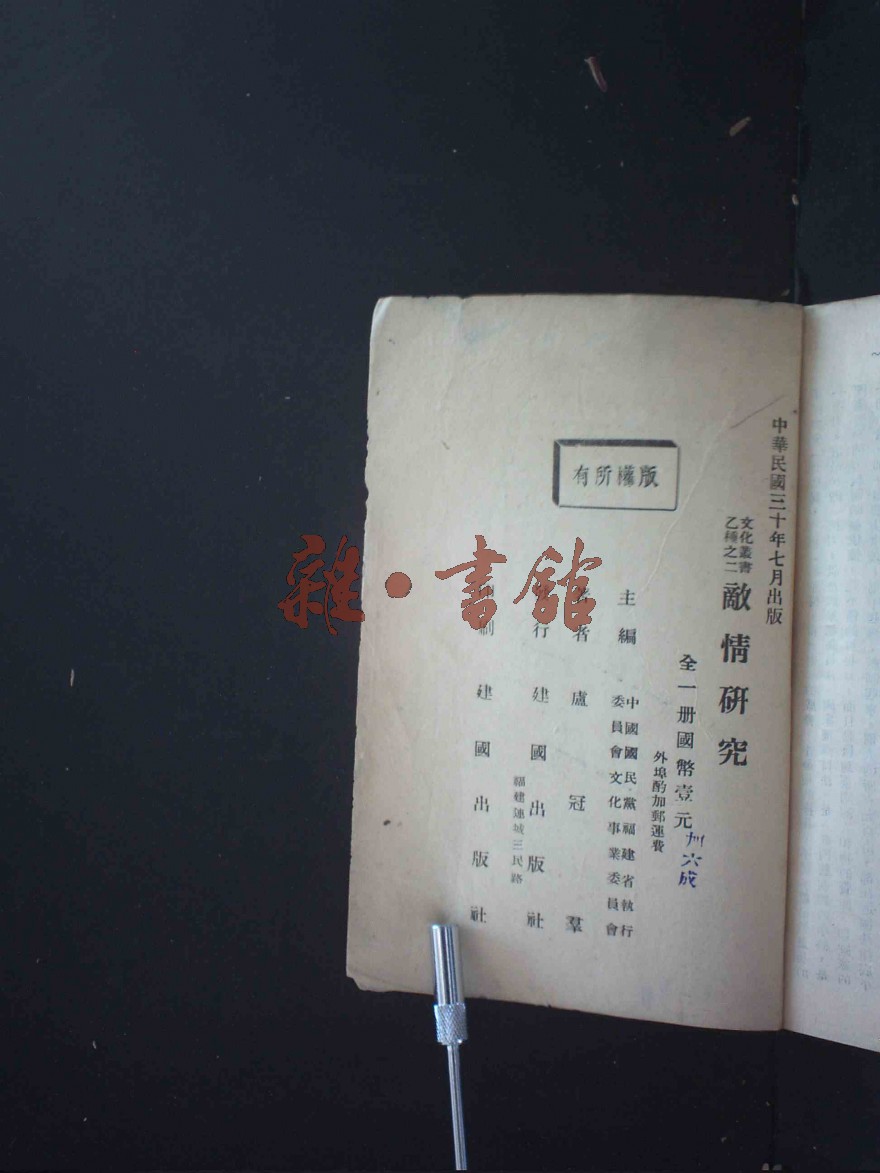 中華民國三十年七月出版
文化叢書
乙種之二
敵情研究
全一册國幣壹元
加六成
外埠酌加郵運費
版權所有
主編
中國國民黨福建省執行
委員會文化事業委員會
著者 盧冠羣
發行 建國出版社
福建連城三民路
印刷 建國出版社
雜·書館